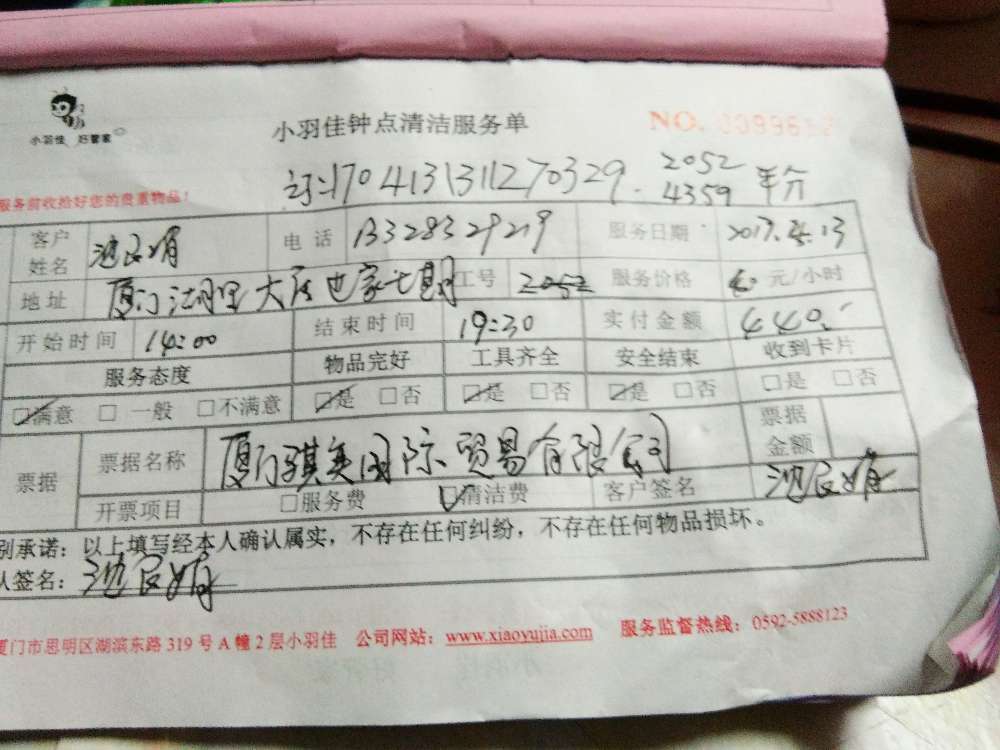 小羽佳 好管家
小羽佳钟点清洁服务单
NO.
订:1704131311270329.
2052
4359 平分
服务前收拾好您的贵重物品!
客户姓名 池良娟 电话 13328329219 服务日期 2017.4.13
地址 厦门湖里大唐世家七期 工号 2052 服务价格 40 元/小时
开始时间 14:00 结束时间 19:30 实付金额 440.
服务态度 物品完好 工具齐全 安全结束 收到卡片
☑满意 □ 一般 □不满意 ☑是 □否 ☑是 □否 ☑是 □否 □是 □否
票据 票据名称 厦门骐美国际贸易有限公司 票据金额
开票项目 □服务费 ☑清洁费 客户签名 池良娟
别承诺：以上填写经本人确认属实，不存在任何纠纷，不存在任何物品损坏。
人签名：池良娟
厦门市思明区湖滨东路 319 号 A 幢 2 层小羽佳 公司网站：www.xiaoyujia.com 服务监督热线：0592-5888123